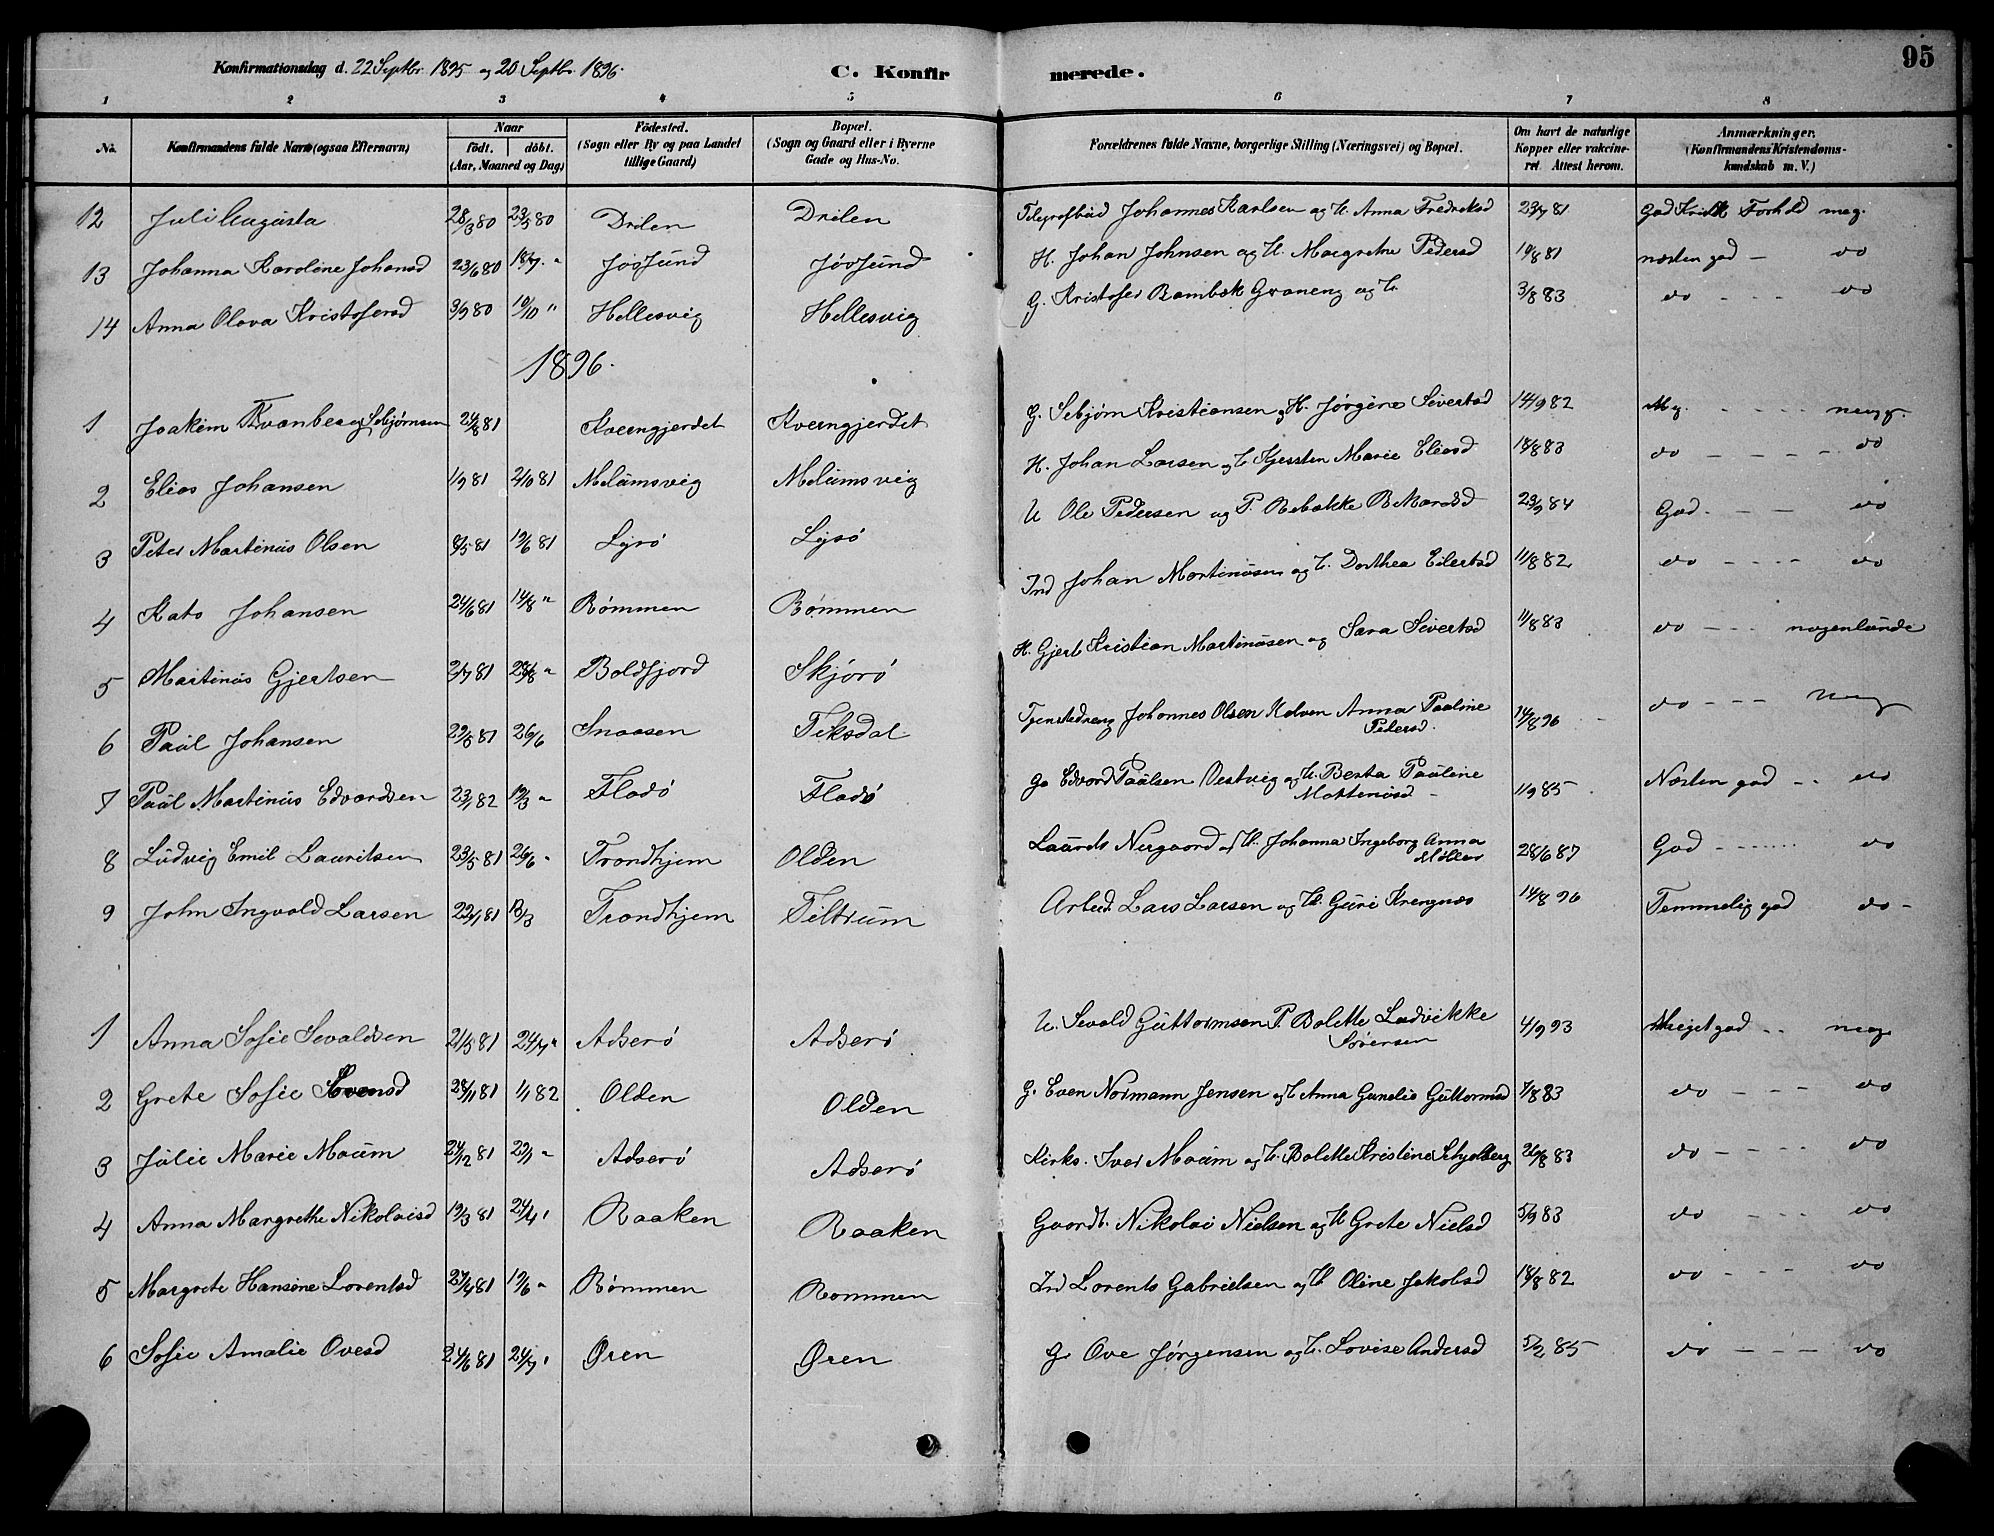 Konfirmationsdag d. 22 Septbr. 1895 og 20 Septbr. 1896.
C. Konfirmerede.
95
1 2 3 4 5 6 7 8
No. Konfirmandens fulde Navn (ogsaa Efternavn) Naar födt. döbt. (Aar, Maaned og Dag) Födested. (Sogn eller By og paa Landet tillige Gaard) Bopæl. (Sogn og Gaard eller i Byerne Gade og Hus-No. Forældrenes fulde Navne, borgerlige Stilling (Næringsvei) og Bopæl. Om havt de naturlige Kopper eller vakcineret. Attest herom. Anmærkninger. (Konfirmandens Kristendomskundskab m. V.)
12 Juli Augusta 28/3 80 23/5 80 Drilen Drilen Telegrafbud Johannes Karlsen og H. Anna Fredriksd 23/7 81 God Forhold meg.
13 Johanna Karoline Johansd 23/6 80 18/7 " Jøssund Jøssund H. Johan Johnsen og H. Margrethe Pedersd 19/8 81 næsten god - do
14 Anna Olava Kristofersd 3/9 80 10/10 " Hellesvig Hellesvig G. Kristofer Graneng og H. 3/8 83 do - - - do
1896.
1 Joakim Kvanberg Sebjørnsen 24/8 81 Kverngjerdet Kverngjerdet G. Sebjørn Kristiansen og H. Jørgine Sivertsd 14/9 82 Mg. - - - -
2 Elias Johansen 1/9 81 2/10 81 Melumsvig Melumsvig H. Johan Larsen og H. Kjersten Marie Eliasd 18/8 83 do - - - - do
3 Peter Martinus Olsen 8/5 81 19/6 81 Lysø Lysø U Ole Pedersen og P. Rebekke 23/9 84 God - - - do
4 Kato Johansen 24/6 81 14/8 " Rømmen Rømmen Ind Johan Martinusen og H. Dorthea Eilertsd 11/8 82 do - - - - do
5 Martinus Gjertsen 2/7 81 28/8 " Boldfjord Skjørø H. Gjert Kristian Martinusen og Sara Sivertsd 11/8 83 do - - - nogenlunde
6 Paul Johansen 29/5 81 26/6 Snaasen Teksdal Johannes Olsen Kalven Anna Pauline Pedersd. 14/8 96 do - - - meg
7 Paul Martinus Edvardsen 23/1 82 19/3 " Fladø Fladø G Edvard Paulsen Vestvig og H. Berta Pauline 11/9 85 Næsten god - - do
8 Ludvig Emil Lauritsen 23/5 81 26/6 " Trondhjem Olden Laurits Nergaard og H. Johanna Ingeborg Anna Møller 28/6 87 God - - - - do
9 John Ingvald Larsen 22/1 81 13/3 Trondhjem Tiltrum Arbeid. Lars Larsen og H. Guri Krengnes 14/8 96 Temmelig god do -
1 Anna Sofie Sevaldsen 21/5 81 24/7 " Adserø Adserø U. Sevald Guttormsen P. Bolette Ludvikke Sørensen 4/9 93 Meget god - - meg
2 Grete Sofie Evensd 28/11 81 1/1 82 Olden Olden G. Even Normann Jensen og H Anna Gunelie Guttormsd 7/8 83 do - - - do
3 Julie Marie Moum 24/12 81 22/1 " Adserø Adserø Kirks. Iver Moum og H. Bolette Kristine Schjelberg 26/8 83 do - - - - do
4 Anna Margrethe Nikolaisd 19/3 81 24/4 " Raaken Raaken Gaardb. Nikolai Nielsen og H Grete Nielsd 5/9 83 do - - - do
5 Margrete Hansine Lorentsd 27/4 81 19/6 " Rømmen Rommen Ind Lorents Gabrielsen og H Oline Jakobsd 18/8 82 do - - - do
6 Sofie Amalie Ovesd 24/6 81 24/7 " Øren Øren G. Ove Jørgensen og H. Lovise Andersd 5/2 85 do - - - do